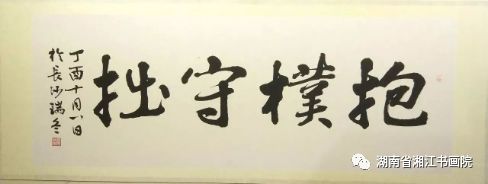 抱樸守拙
丁酉十月八日
於長沙瑞冬
湖南省湘江书画院